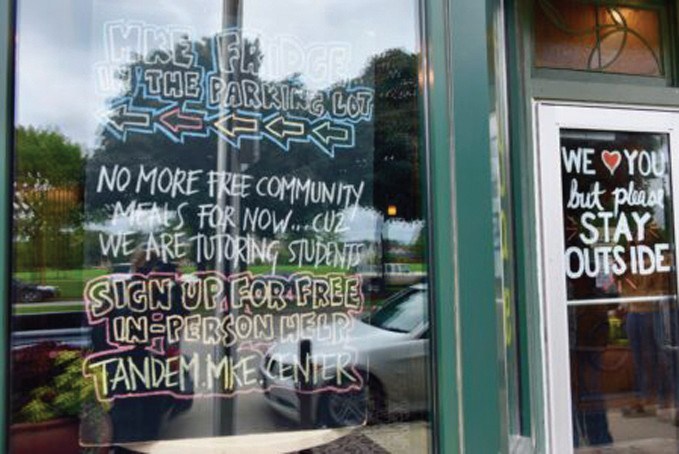 MKE FRIDGE
IN THE PARKING LOT
NO MORE FREE COMMUNITY
MEALS FOR NOW...CUZ
WE ARE TUTORING STUDENTS
SIGN UP FOR FREE
IN-PERSON HELP
TANDEM.MKE.CENTER
WE ♥ YOU
but please
STAY
OUTSIDE